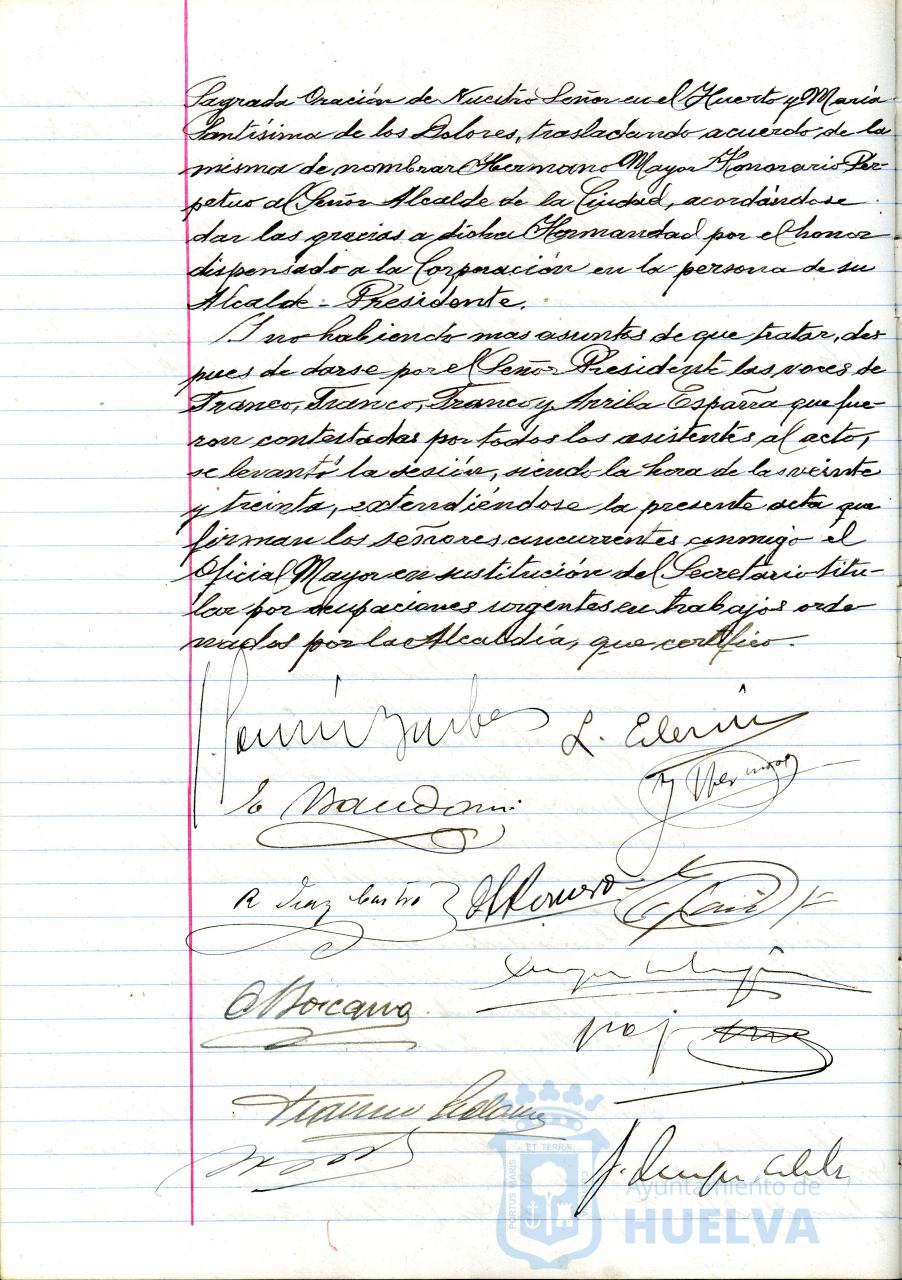 Sagrada Oración de Nuestro Señor en el Huerto y María
Santísima de los Dolores, trasladando acuerdo de la
misma de nombrar Hermano Mayor Honorario Per-
petuo al Señor Alcalde de la Ciudad, acordándose
dar las gracias a dicha Hermandad por el honor
dispensado a la Corporación en la persona de su
Alcalde-Presidente.
Y no habiendo mas asuntos de que tratar, des
pues de darse por el Señor Presidente las voces de
Franco, Franco, Franco y Arriba España que fue-
ron contestadas por todos los asistentes al acto,
se levantó la sesión, siendo la hora de las veinte
y treinta, extendiéndose la presente acta que
firman los señores concurrentes conmigo el
Oficial Mayor en sustitución del Secretario titu-
lar por ocupaciones urgentes en trabajos orde
nados por la Alcaldía, que certifico.
L.
E
R Diaz Castro
Romero
PORTUS MARIS ET TERRÆ
Ayuntamiento de
HUELVA